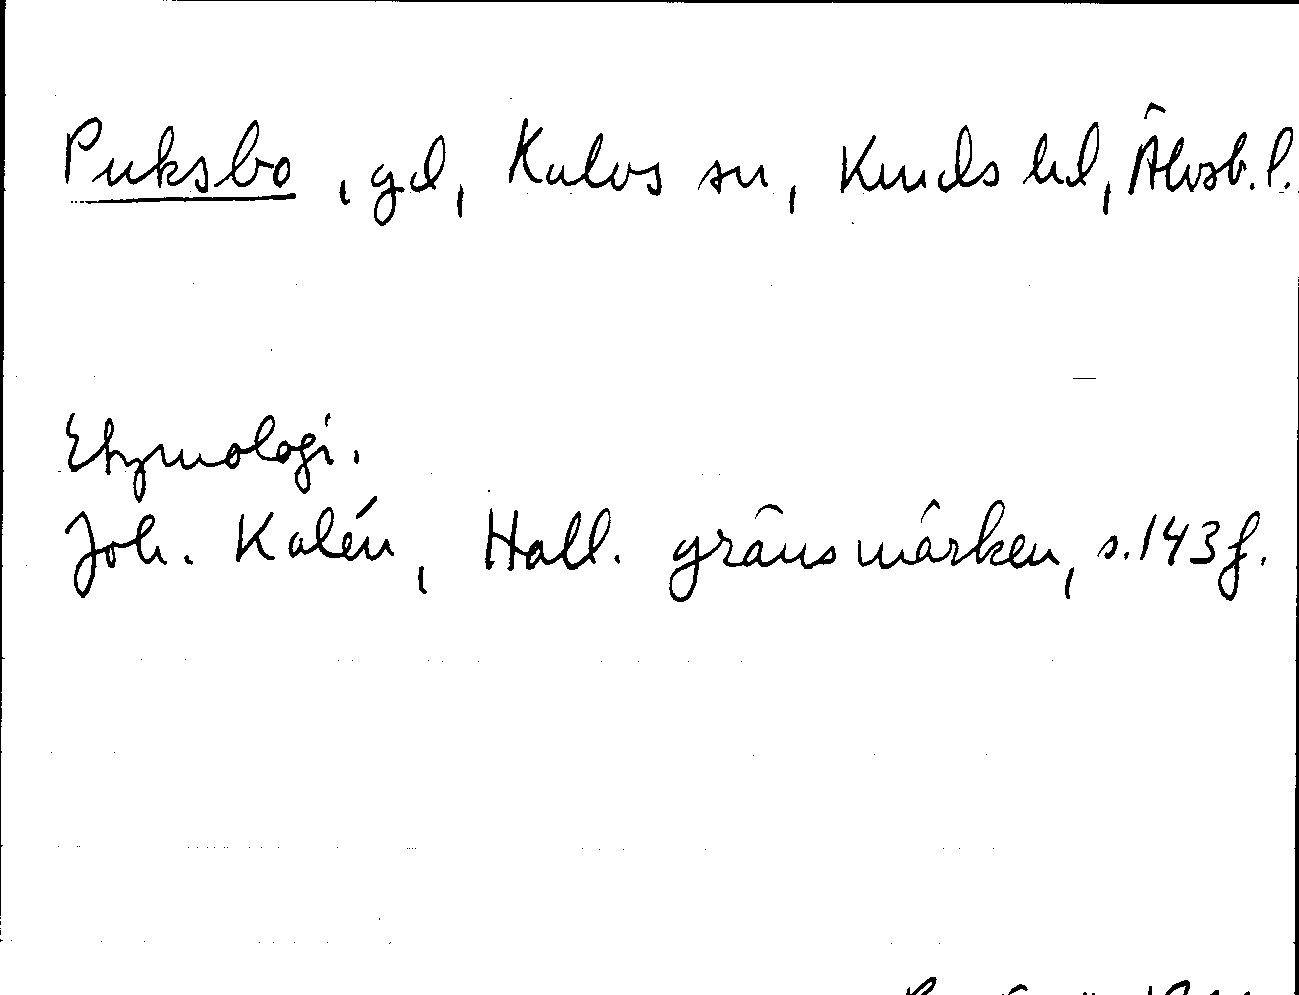 Puksbo, gd, Kalvs sn, Kinds hd, Älvsb. l.
Etymologi.
Joh. Kalén, Hall. gränsmärken, s. 143 f.